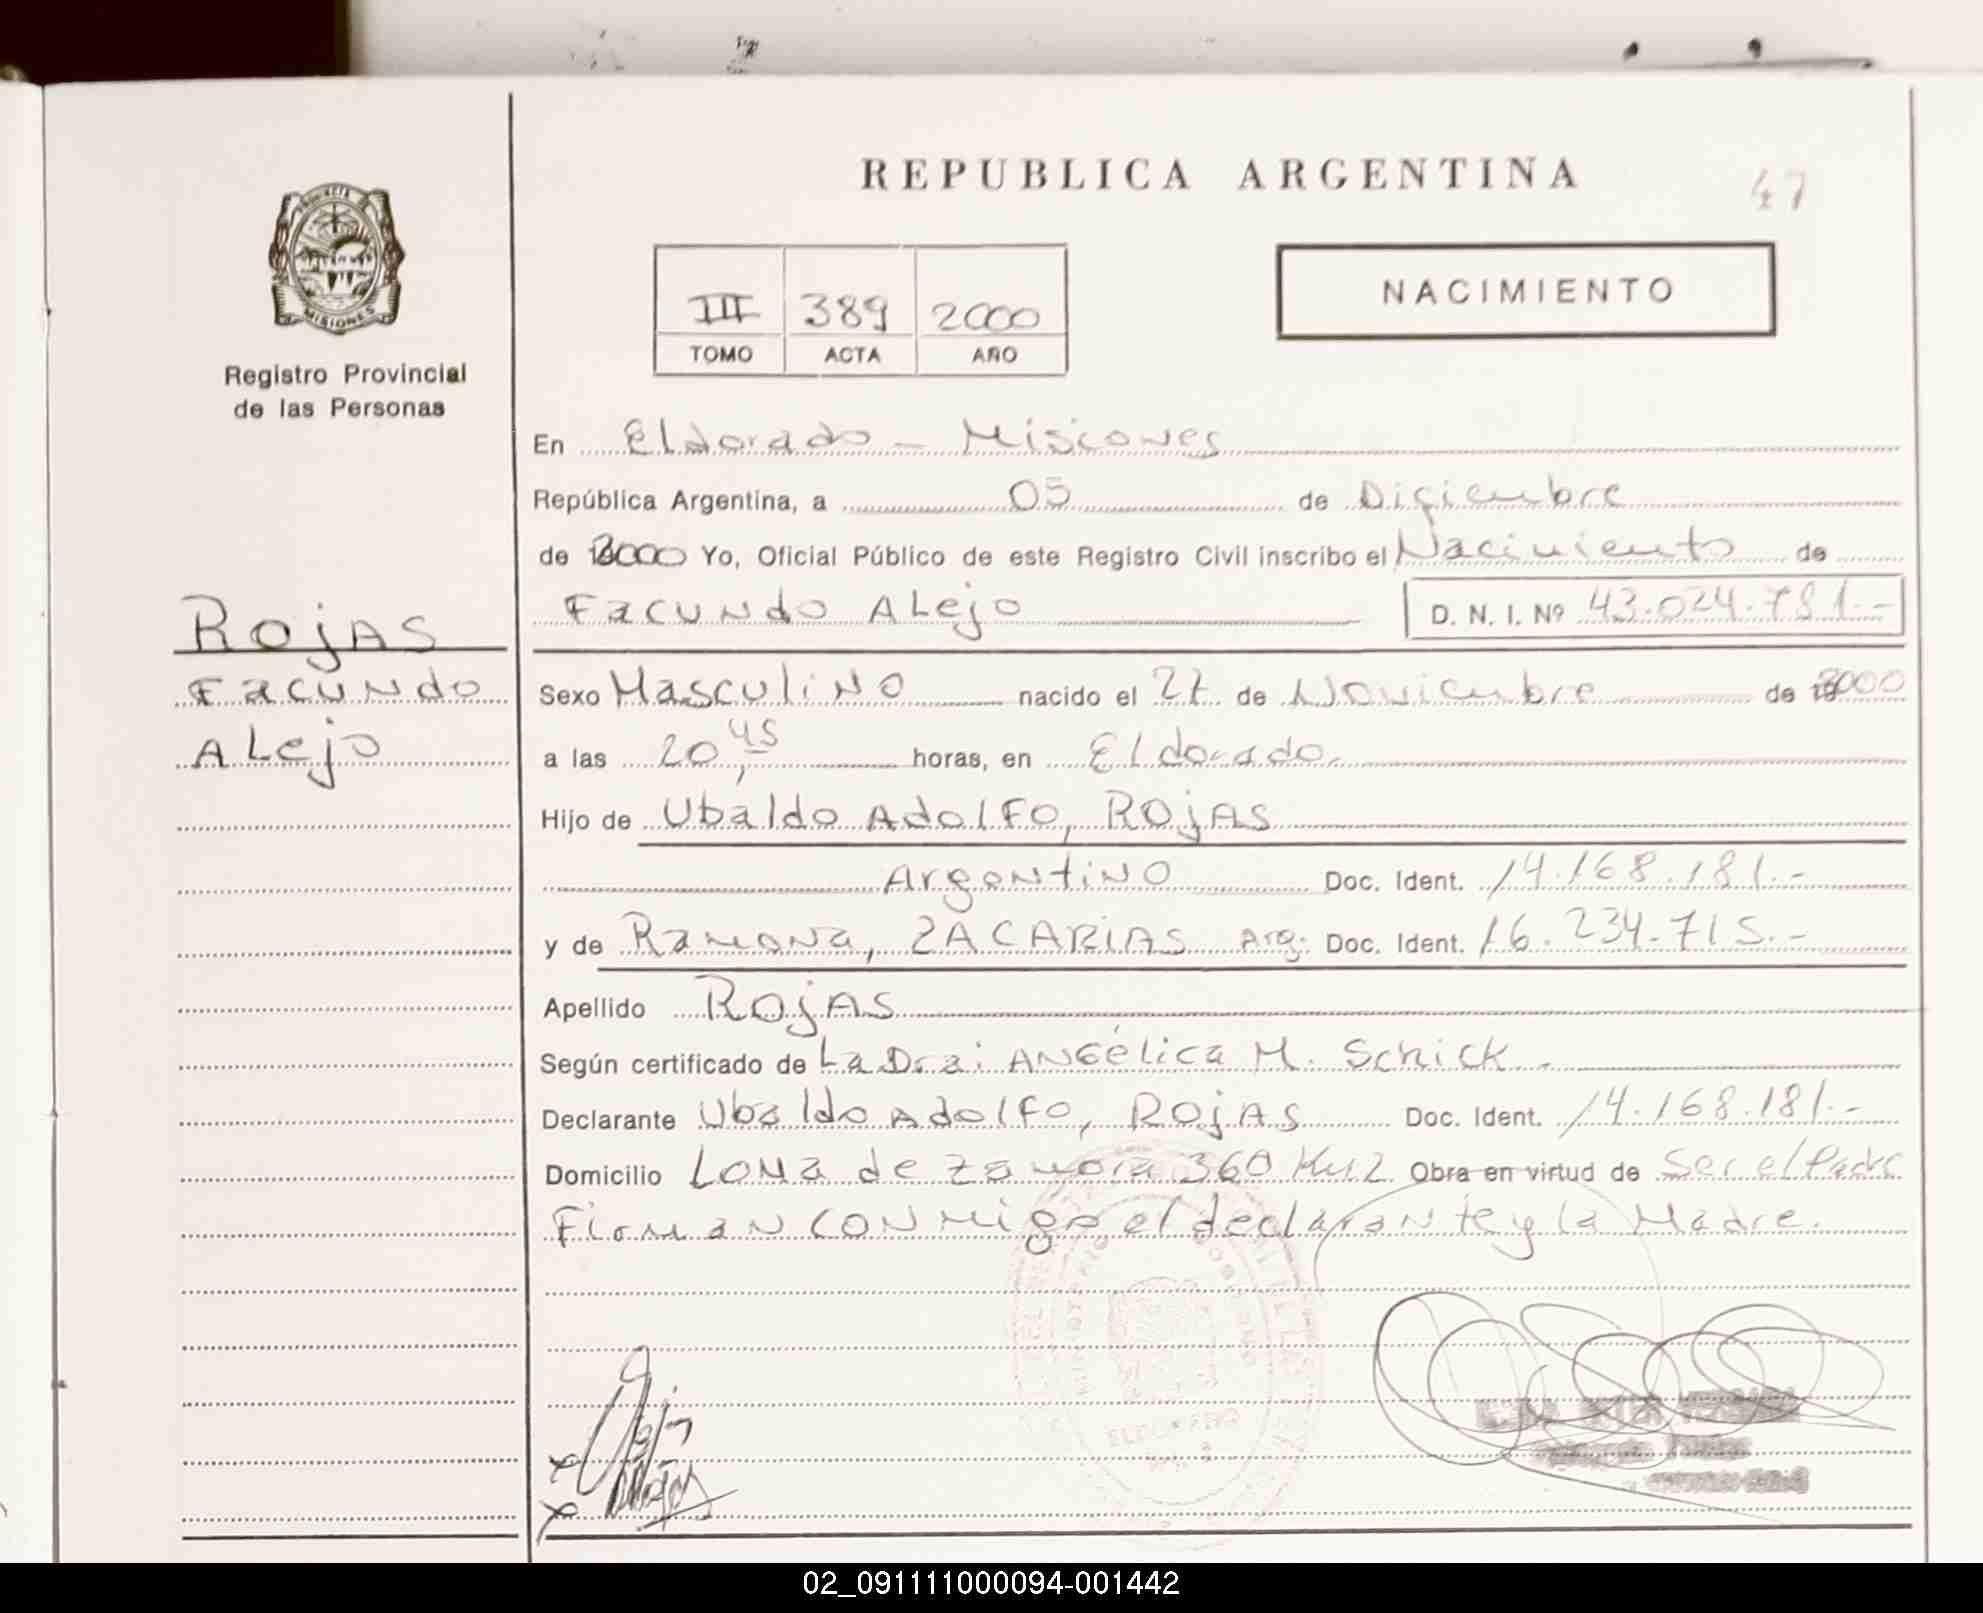 REPUBLICA ARGENTINA
47
PROVINCIA DE
MISIONES
Registro Provincial
de las Personas
III 389 2000
TOMO ACTA AÑO
NACIMIENTO
En Eldorado - Misiones
República Argentina, a 05 de Diciembre
de 2000 Yo, Oficial Público de este Registro Civil inscribo el Nacimiento de
Facundo Alejo D. N. I. Nº 43.024.781.-
Rojas
Facundo
Alejo
Sexo Masculino nacido el 27 de Noviembre de 2000
a las 20,45 horas, en Eldorado.
Hijo de Ubaldo Adolfo, Rojas
Argentino Doc. Ident. 14.168.181.-
y de Ramona, ZACARIAS Arg: Doc. Ident. 16.234.715.-
Apellido Rojas
Según certificado de La Dra: Angélica M. Schick.
Declarante Ubaldo Adolfo, Rojas Doc. Ident. 14.168.181.-
Domicilio Loma de Zamora 360 Km 2 Obra en virtud de Ser el Padre
Firman conmigo el declarante y la Madre.
MINISTERIO
GOBIERNO
ELDORADO
02_091111000094-001442